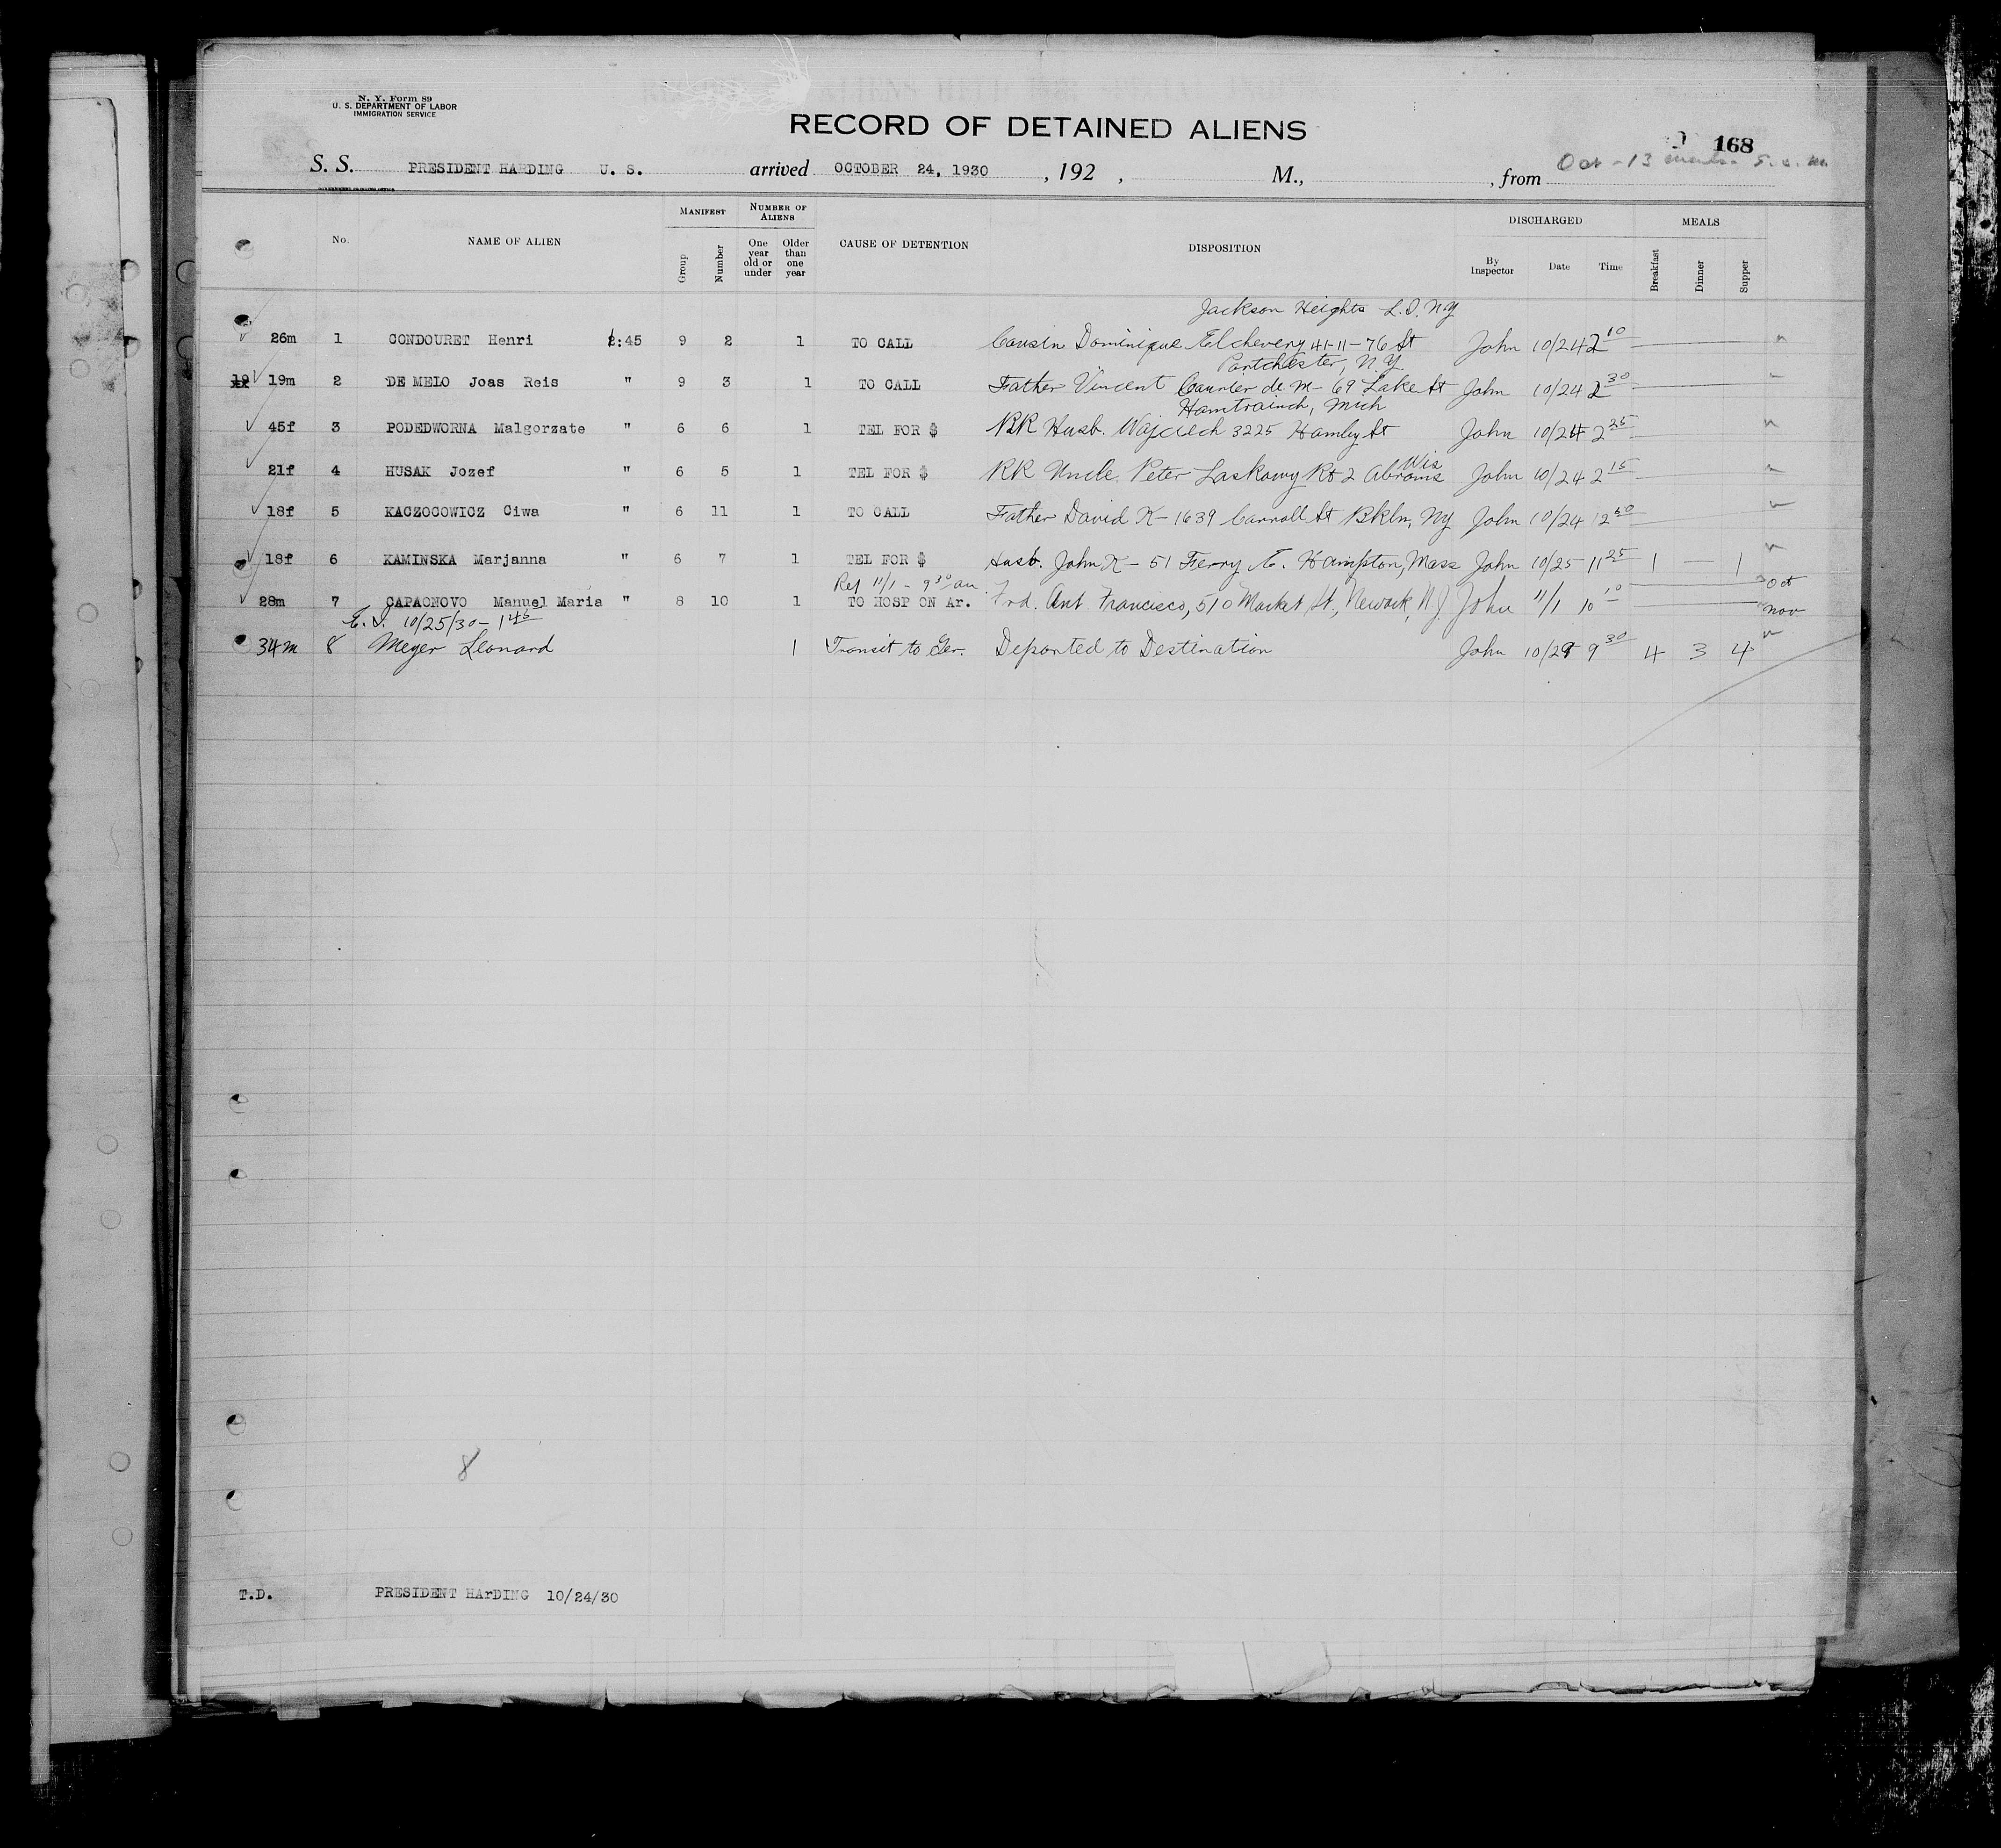 N. Y. Form 89
U. S. DEPARTMENT OF LABOR
IMMIGRATION SERVICE
RECORD OF DETAINED ALIENS
168
S. S. PRESIDENT HARDING U. S. arrived OCTOBER 24, 1930 , 192 , M., , from Oct - 13 meals
No. NAME OF ALIEN MANIFEST NUMBER OF ALIENS CAUSE OF DETENTION DISPOSITION DISCHARGED MEALS
Group Number One year old or under Older than one year By Inspector Date Time Breakfast Dinner Supper
Jackson Heights L.I. N.Y
26m 1 CONDOURET Henri 2:45 9 2 1 TO CALL Cousin Dominique Etchevery 41-11-76 St John 10/24 2 10
Portchester, N.Y.
19 19m 2 DE MELO Joas Reis " 9 3 1 TO CALL Father Vincent de M- 69 Lake St John 10/24 2 30
Hamtramck, Mich
45f 3 PODEDWORNA Malgorzate " 6 6 1 TEL FOR $ RR Husb. Wajciech 3225 Hamley St John 10/24 2 35
Wis
21f 4 HUSAK Jozef " 6 5 1 TEL FOR $ RR Uncle Peter Laskowy Rt 2 Abrams John 10/24 2 15
18f 5 KACZOCOWICZ Ciwa " 6 11 1 TO CALL Father David K- 1639 Carroll St Bkln, Ny John 10/24
18f 6 KAMINSKA Marjanna " 6 7 1 TEL FOR $ Husb. John K- 51 Ferry E. Hampton, Mass John 10/25 11 25 1 — 1
Rej 11/1 - 9 30 am Oct
28m 7 CAPAONOVO Manuel Maria " 8 10 1 TO HOSP ON Ar. Frd. Ant. Francisco, 510 Market St., Newark, N.J. John 11/1 10 10 Nov
10/25/30 - 1 45
34m 8 Meyer Leonard 1 Transit to Ger. Deported to Destination John 10/29 9 30 4 3 4
8
T.D. PRESIDENT HArDING 10/24/30